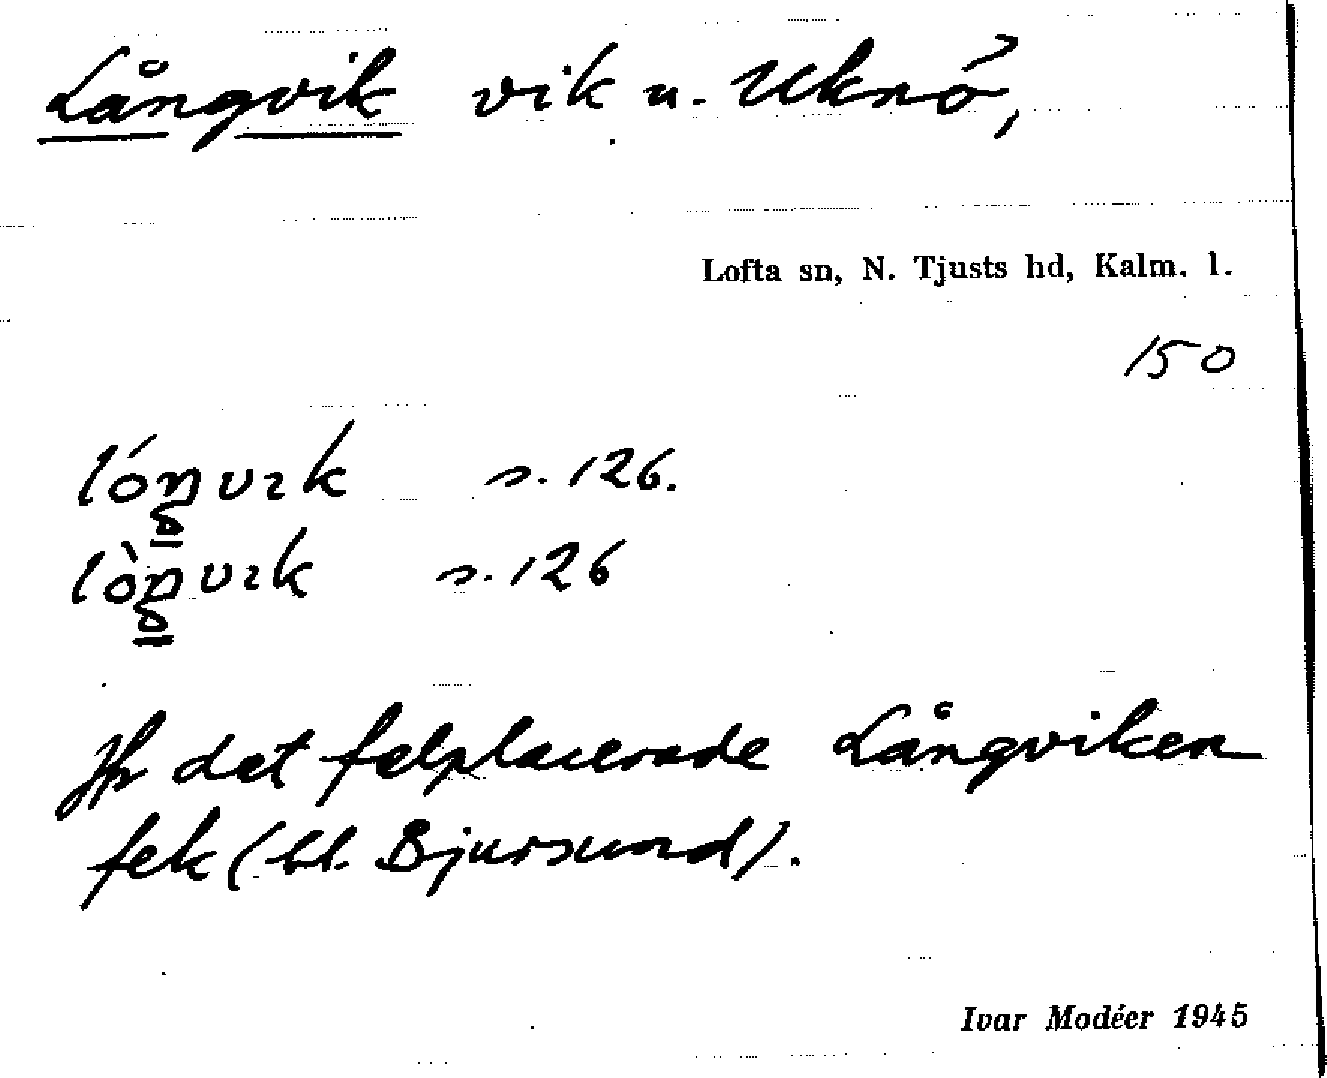 Långvik vik u. Uknö,
Lofta sn, N. Tjusts hd, Kalm. l.
150
lóŋvɪk s. 126.
lòŋvɪk s. 126
Jfr det felplacerade Långviken
fek (bl. Bjursund).
Ivar Modéer 1945